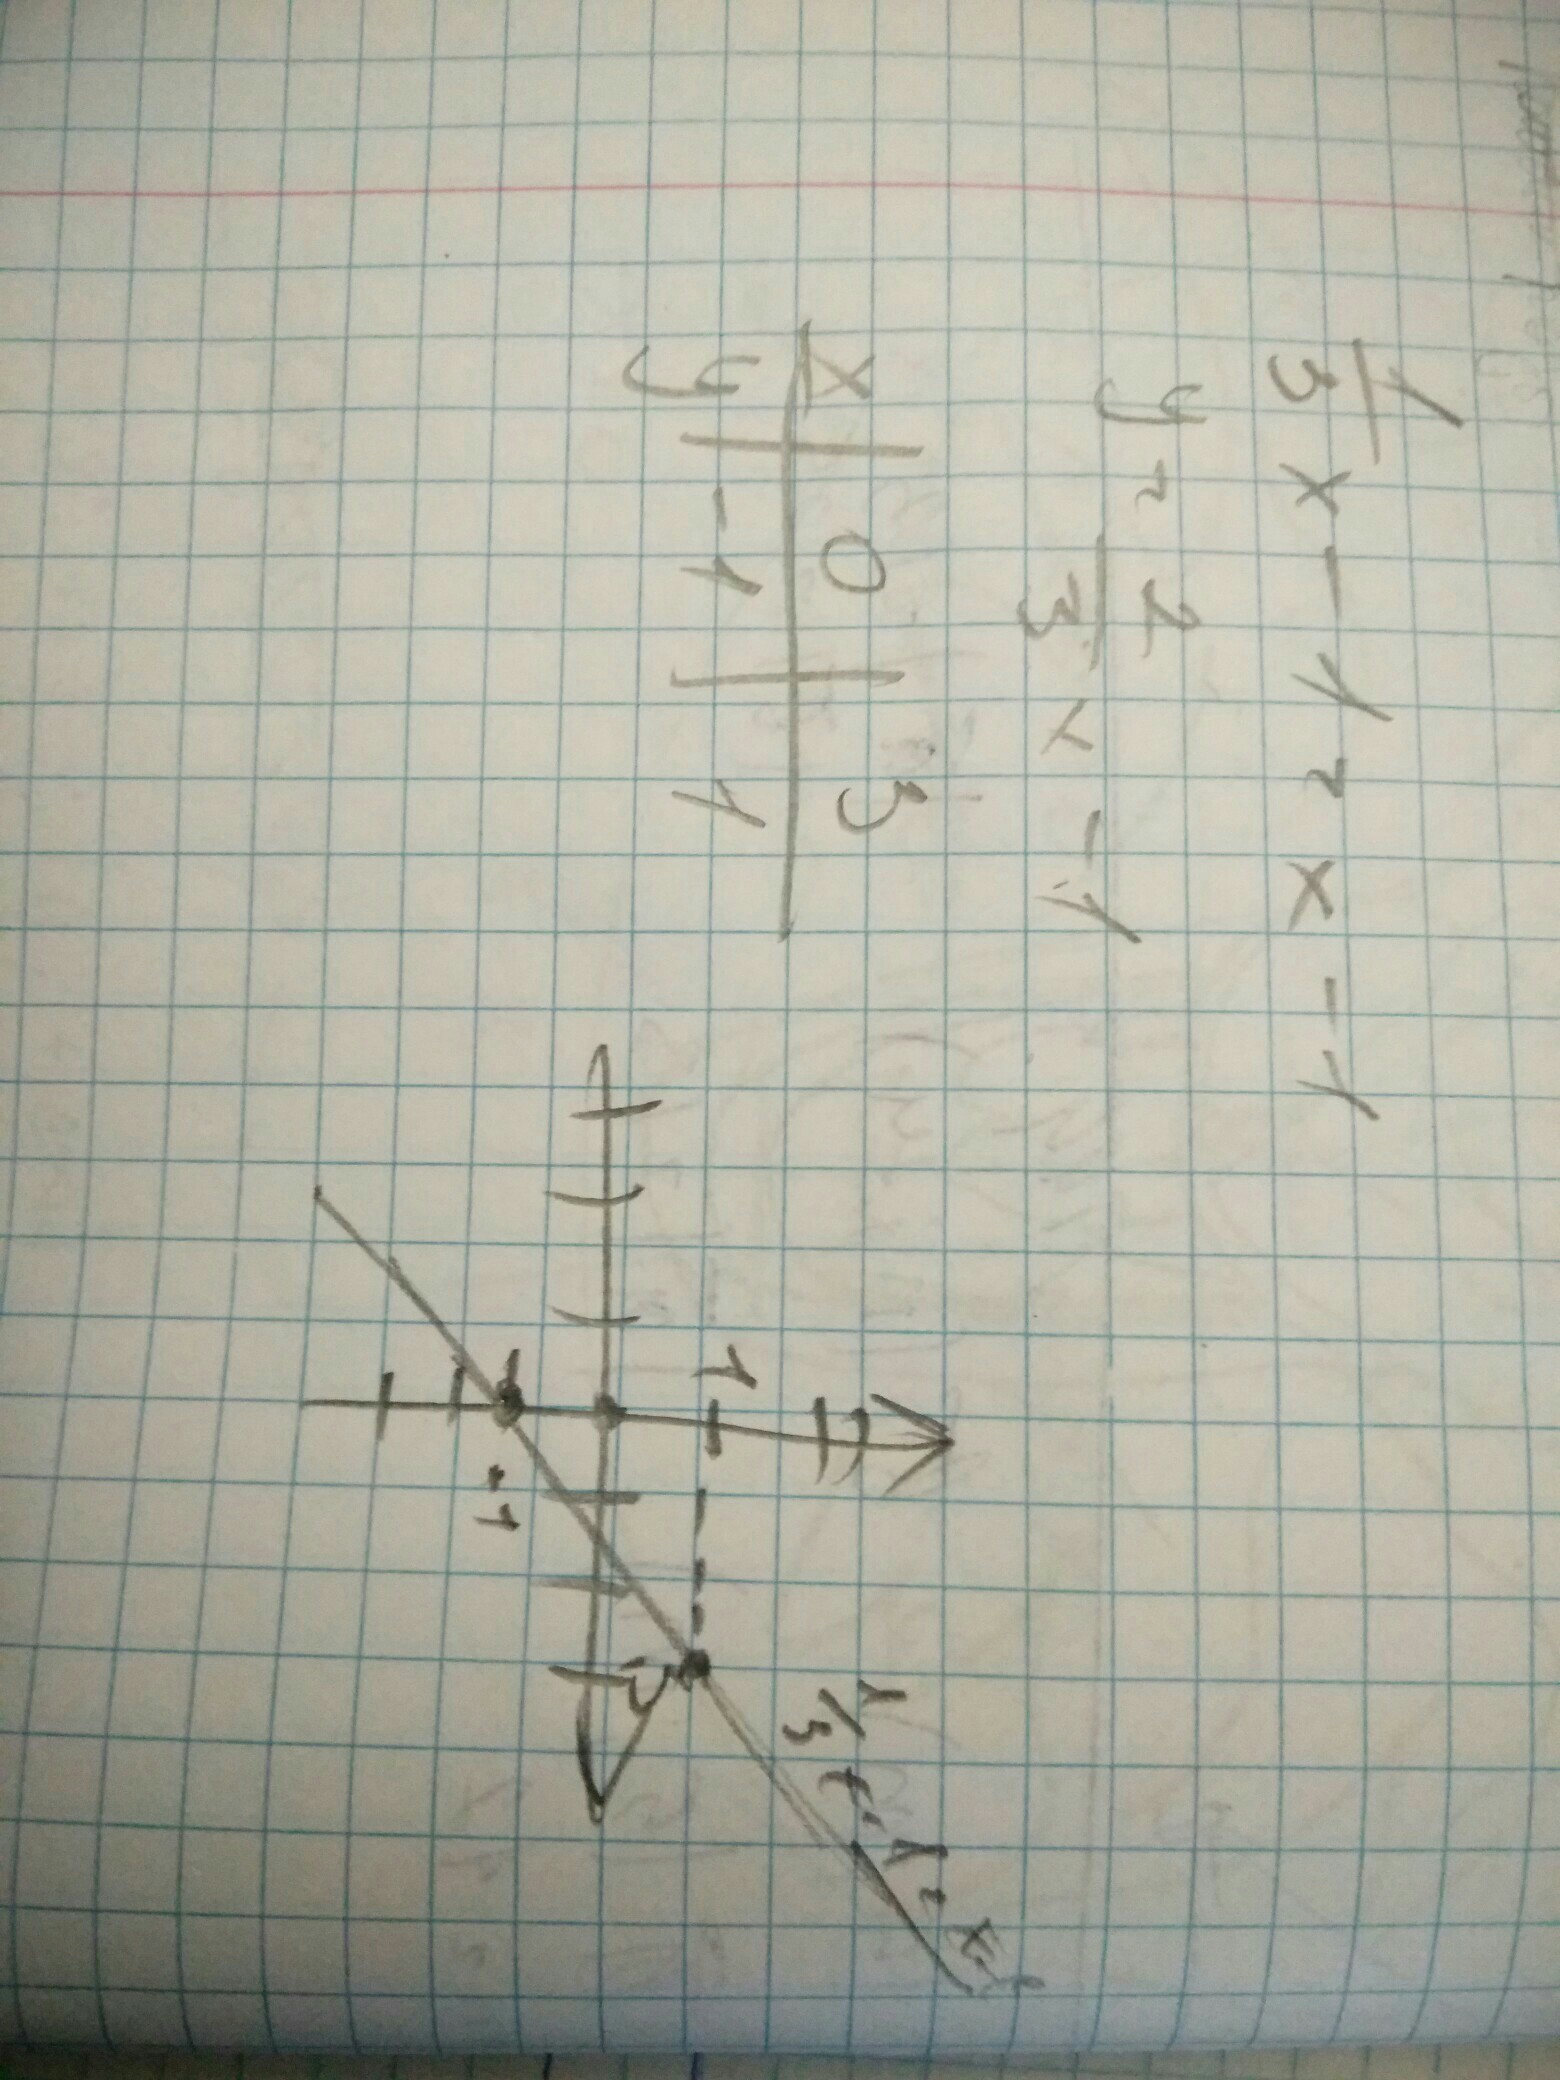 1/3 x - 1 = x - 1
y = 2/3 x - 1
x 0 3
y -1 1
1
-1
3
1/3 x - 1 = x - 1